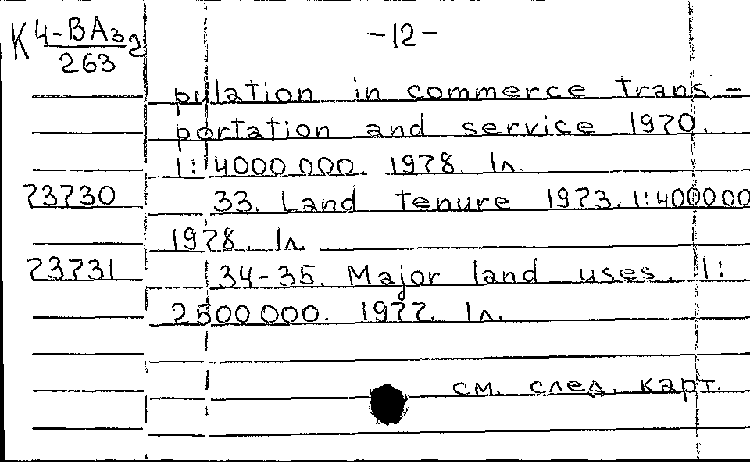 К 4-ВАз2
263
-12-
pulation in commerce Trans-
portation and service 1970.
1:4000000. 1978. 1л.
73730 33. Land Tenure 1973. 1:400000
1978. 1л.
73731 34-35. Major land uses. 1:
2500000. 1977. 1л.
см. след. карт.